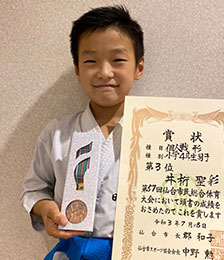 賞状
種目 個人戦 形
種別 小学4年生男子
第3位
井析 聖彩
第57回仙台市民総合体育
大会において頭書の成績を
おさめたのでこれを賞します
令和3年7月18日
仙台市長 郡 和子
仙台市スポーツ協会会長 中野